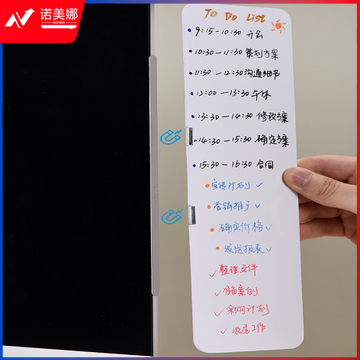 诺美娜
To Do List
9:15-10:30 开会
10:30-11:30 策划方案
11:30-12:30 沟通细节
12:00-13:30 午休
13:30-14:30 修改方案
14:30-15:30 确定方案
15:30-16:30 合同
宣传计划 ✓
营销推广 ✓
确定价格 ✓
发送报表 ✓
✓ 整理文件
✓ 采购计划
✓ 收尾工作